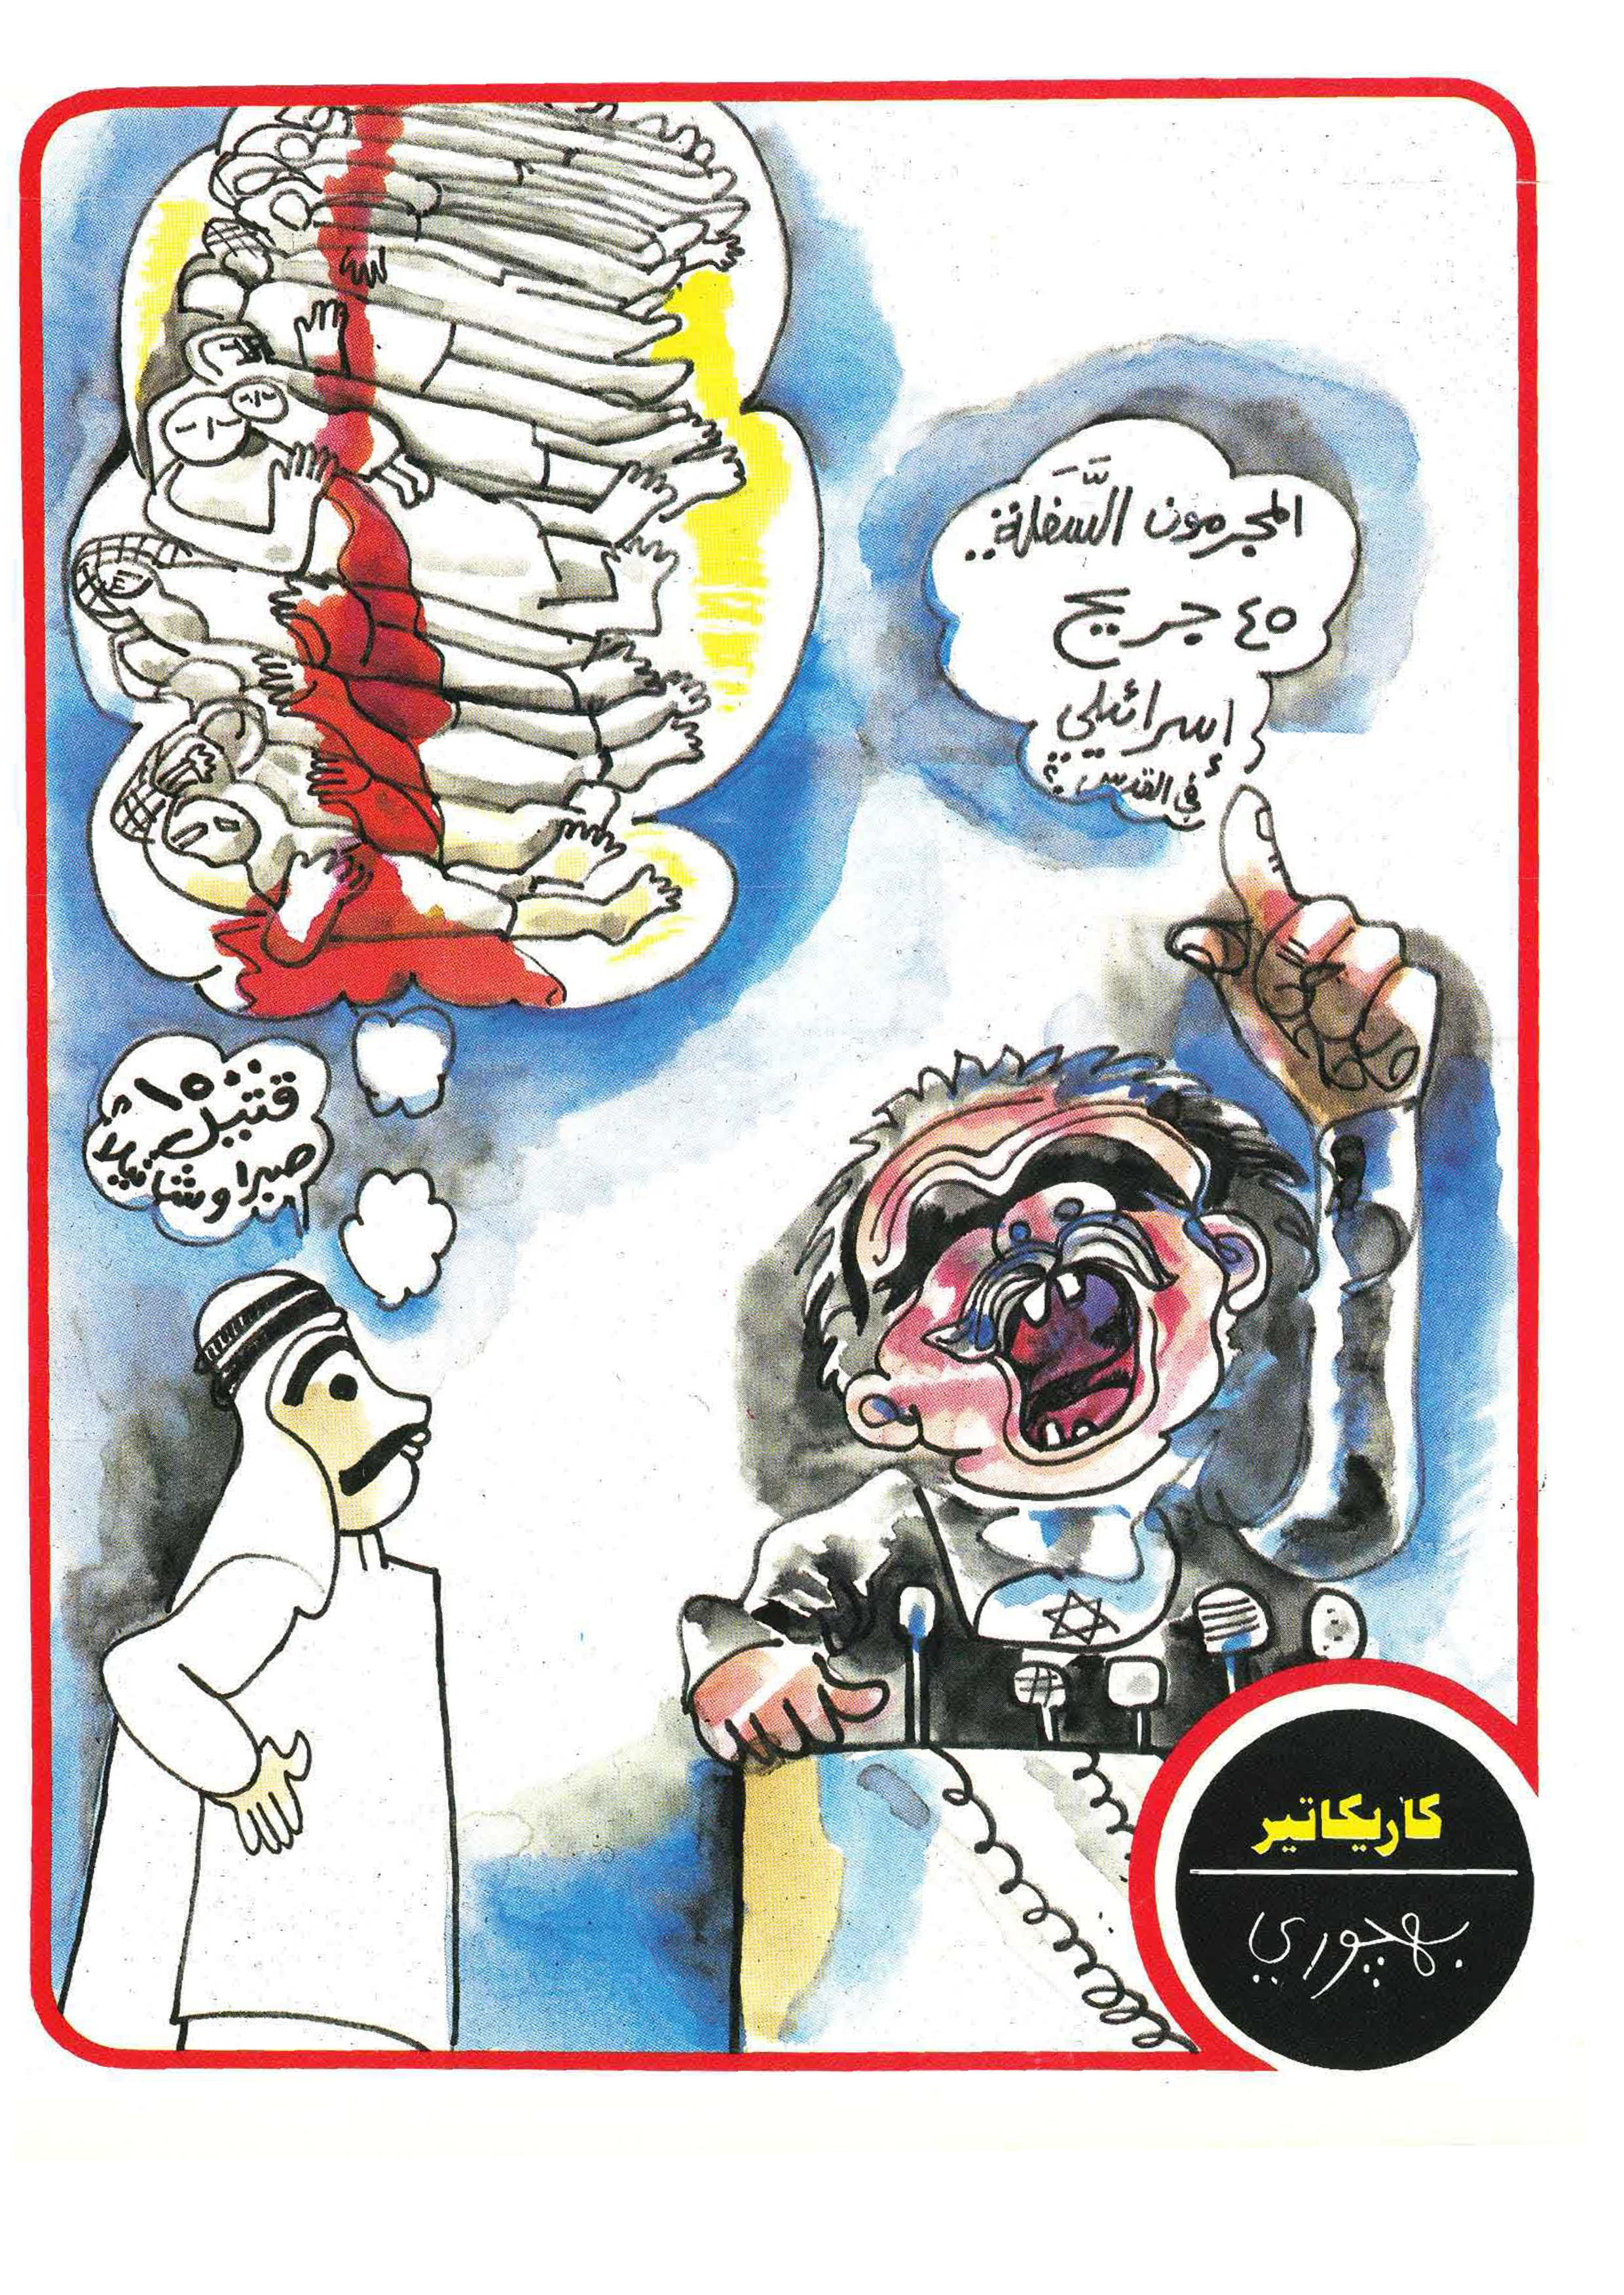 المجرمون السَّفَلَة..
٤٥ جريح
إسرائيلي
في القدس؟
١٥٠٠
قتيل في
صبرا وشاتيلا
كاريكاتير
بهجوري